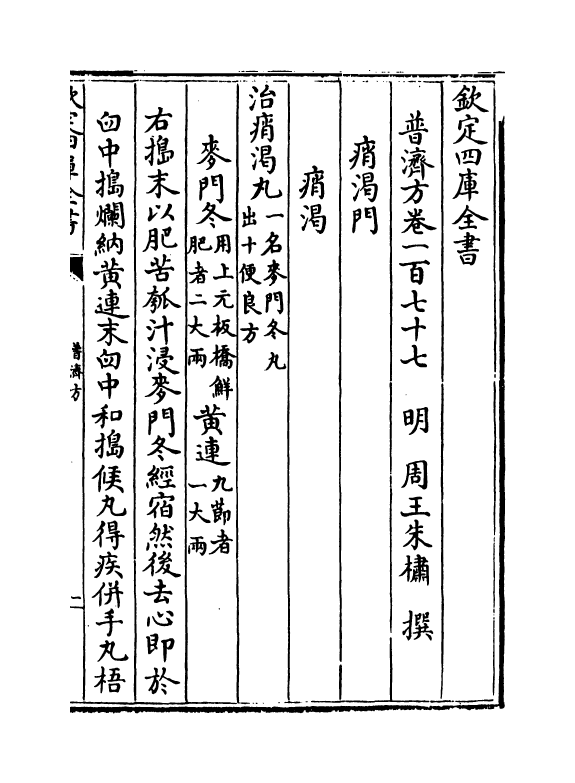 欽定四庫全書
普濟方卷一百七十七　明　周王朱橚　撰
痟渴門
痟渴
治痟渴丸一名麥門冬丸出十便良方
麥門冬用上元板橋鮮肥者二大兩黄連九節者一大兩
右搗末以肥苦瓠汁浸麥門冬經宿然後去心即於
臼中搗爛納黄連末臼中和搗候丸得疾併手丸梧
欽定四庫全書
普濟方
二